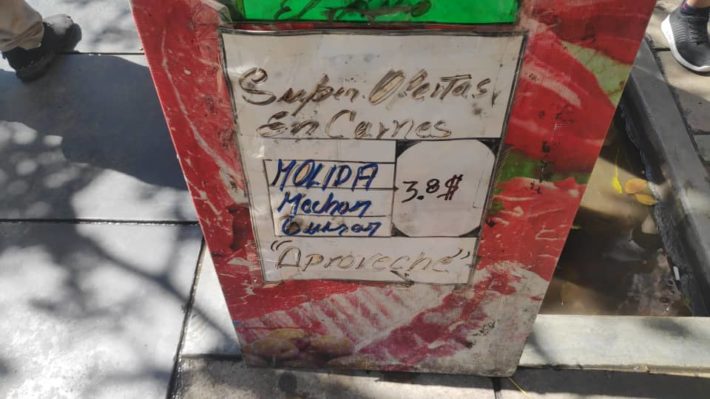 Super Ofertas
En Carnes
MOLIDA
Mechar
Guisar
3.8$
"Aproveche"